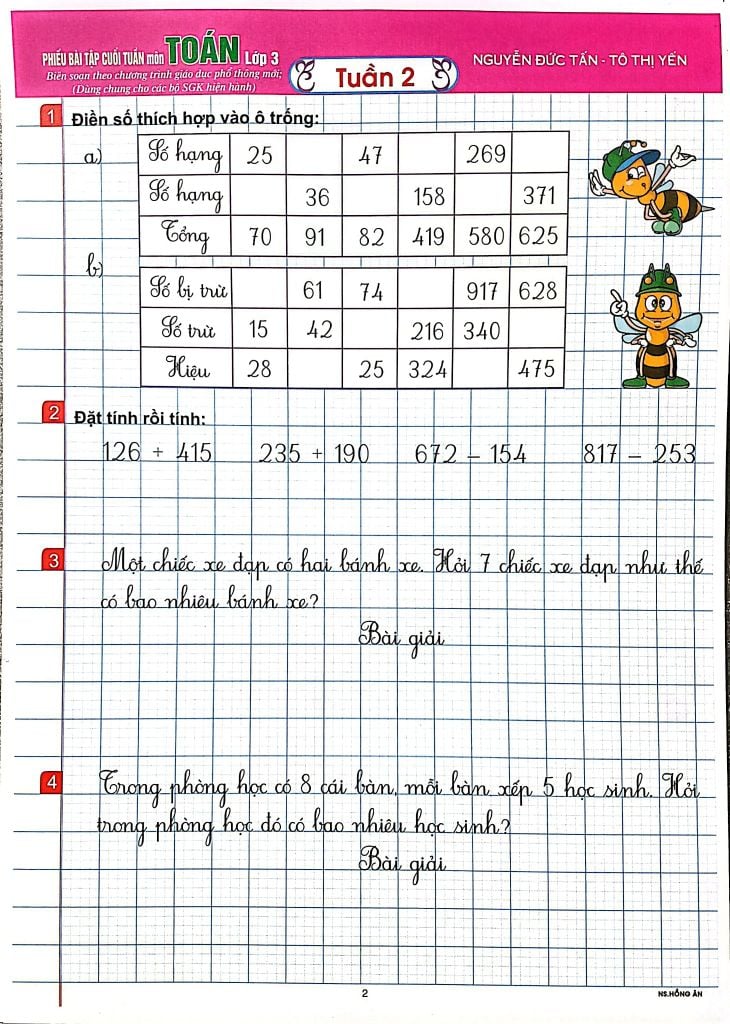 PHIẾU BÀI TẬP CUỐI TUẦN môn TOÁN Lớp 3
Biên soạn theo chương trình giáo dục phổ thông mới;
(Dùng chung cho các bộ SGK hiện hành)
Tuần 2
NGUYỄN ĐỨC TẤN - TÔ THỊ YẾN
1 Điền số thích hợp vào ô trống:
a)
Số hạng 25 47 269
Số hạng 36 158 371
Tổng 70 91 82 419 580 625
b)
Số bị trừ 61 74 917 628
Số trừ 15 42 216 340
Hiệu 28 25 324 475
2 Đặt tính rồi tính:
126 + 415 235 + 190 672 – 154 817 – 253
3 Một chiếc xe đạp có hai bánh xe. Hỏi 7 chiếc xe đạp như thế
có bao nhiêu bánh xe?
Bài giải
4 Trong phòng học có 8 cái bàn, mỗi bàn xếp 5 học sinh. Hỏi
trong phòng học đó có bao nhiêu học sinh?
Bài giải
2
NS.HỒNG ÂN